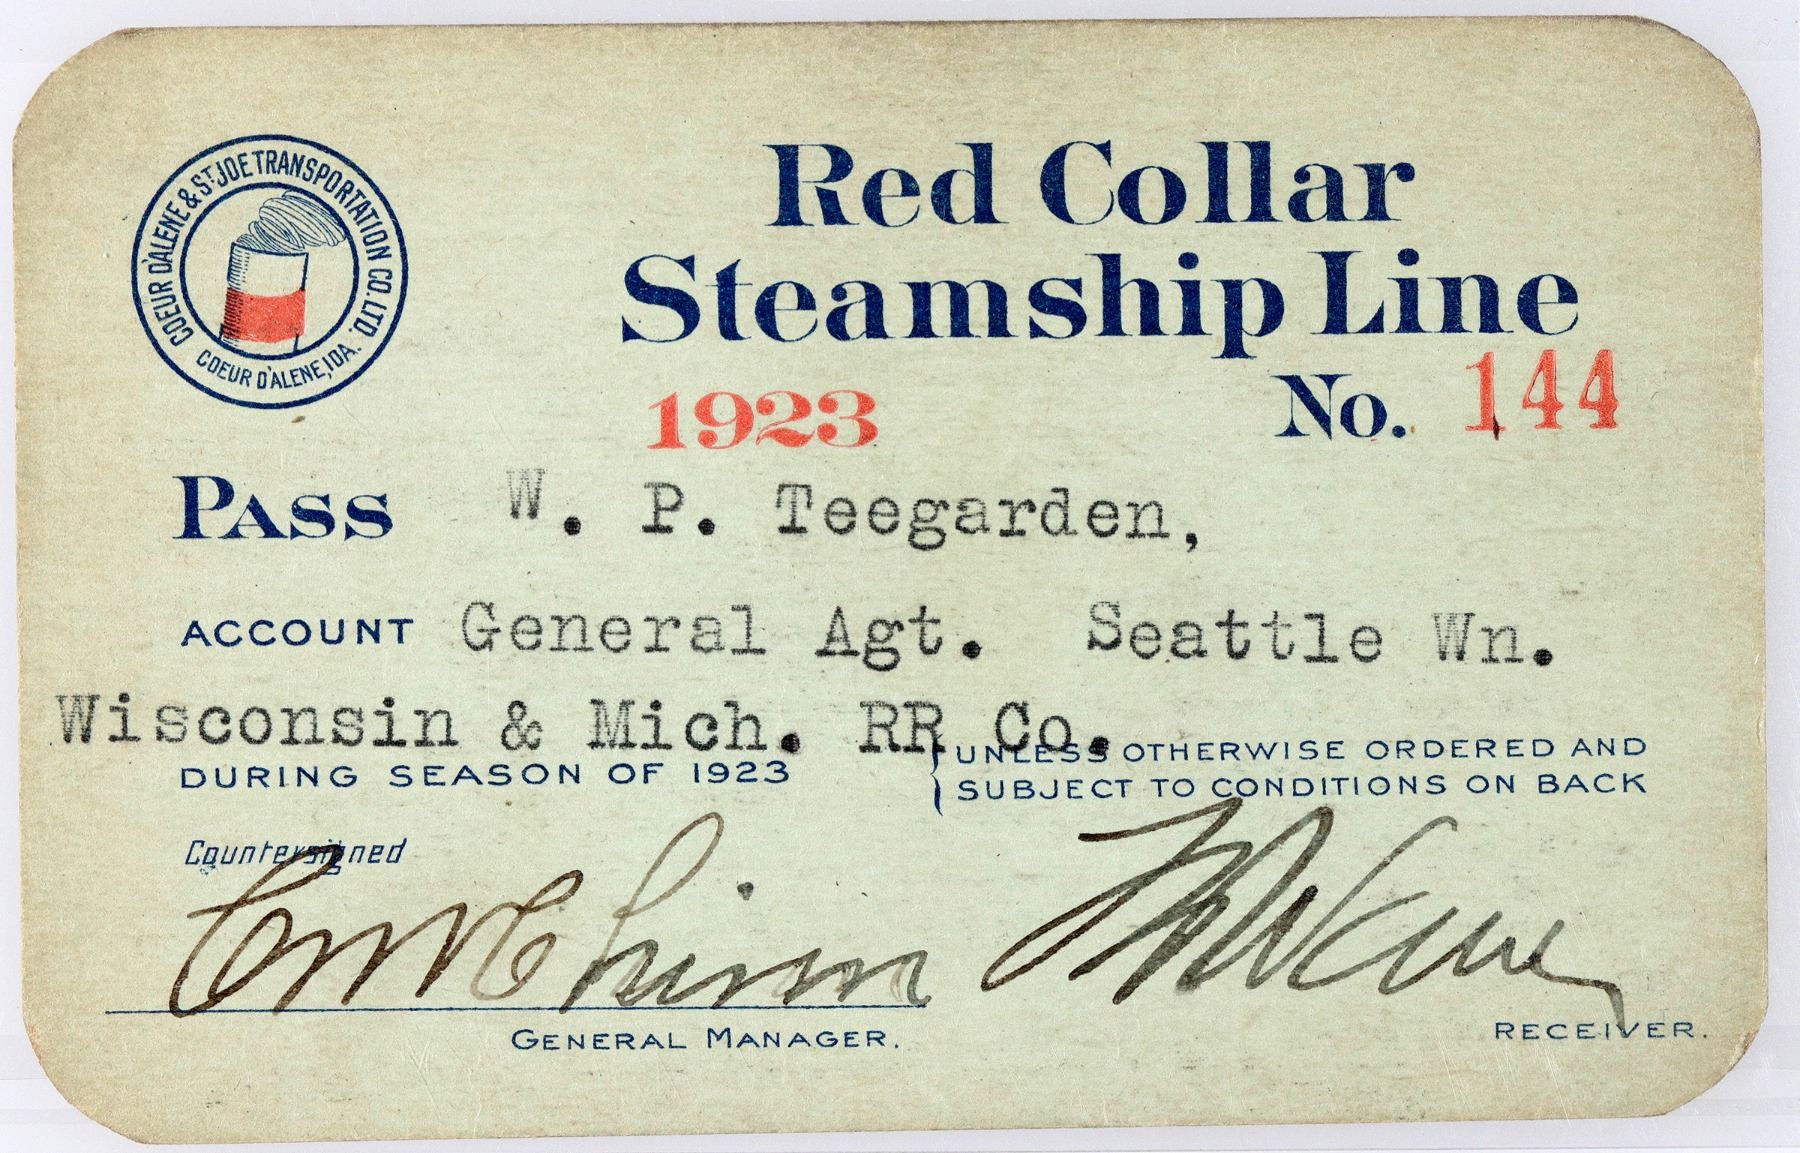 COEUR D'ALENE & ST. JOE TRANSPORTATION CO. LTD.
COEUR D'ALENE, IDA.
Red Collar
Steamship Line
1923 No. 144
PASS W. P. Teegarden,
ACCOUNT General Agt. Seattle Wn.
Wisconsin & Mich. RR Co.
DURING SEASON OF 1923 { UNLESS OTHERWISE ORDERED AND
SUBJECT TO CONDITIONS ON BACK
Countersigned
GENERAL MANAGER.
RECEIVER.